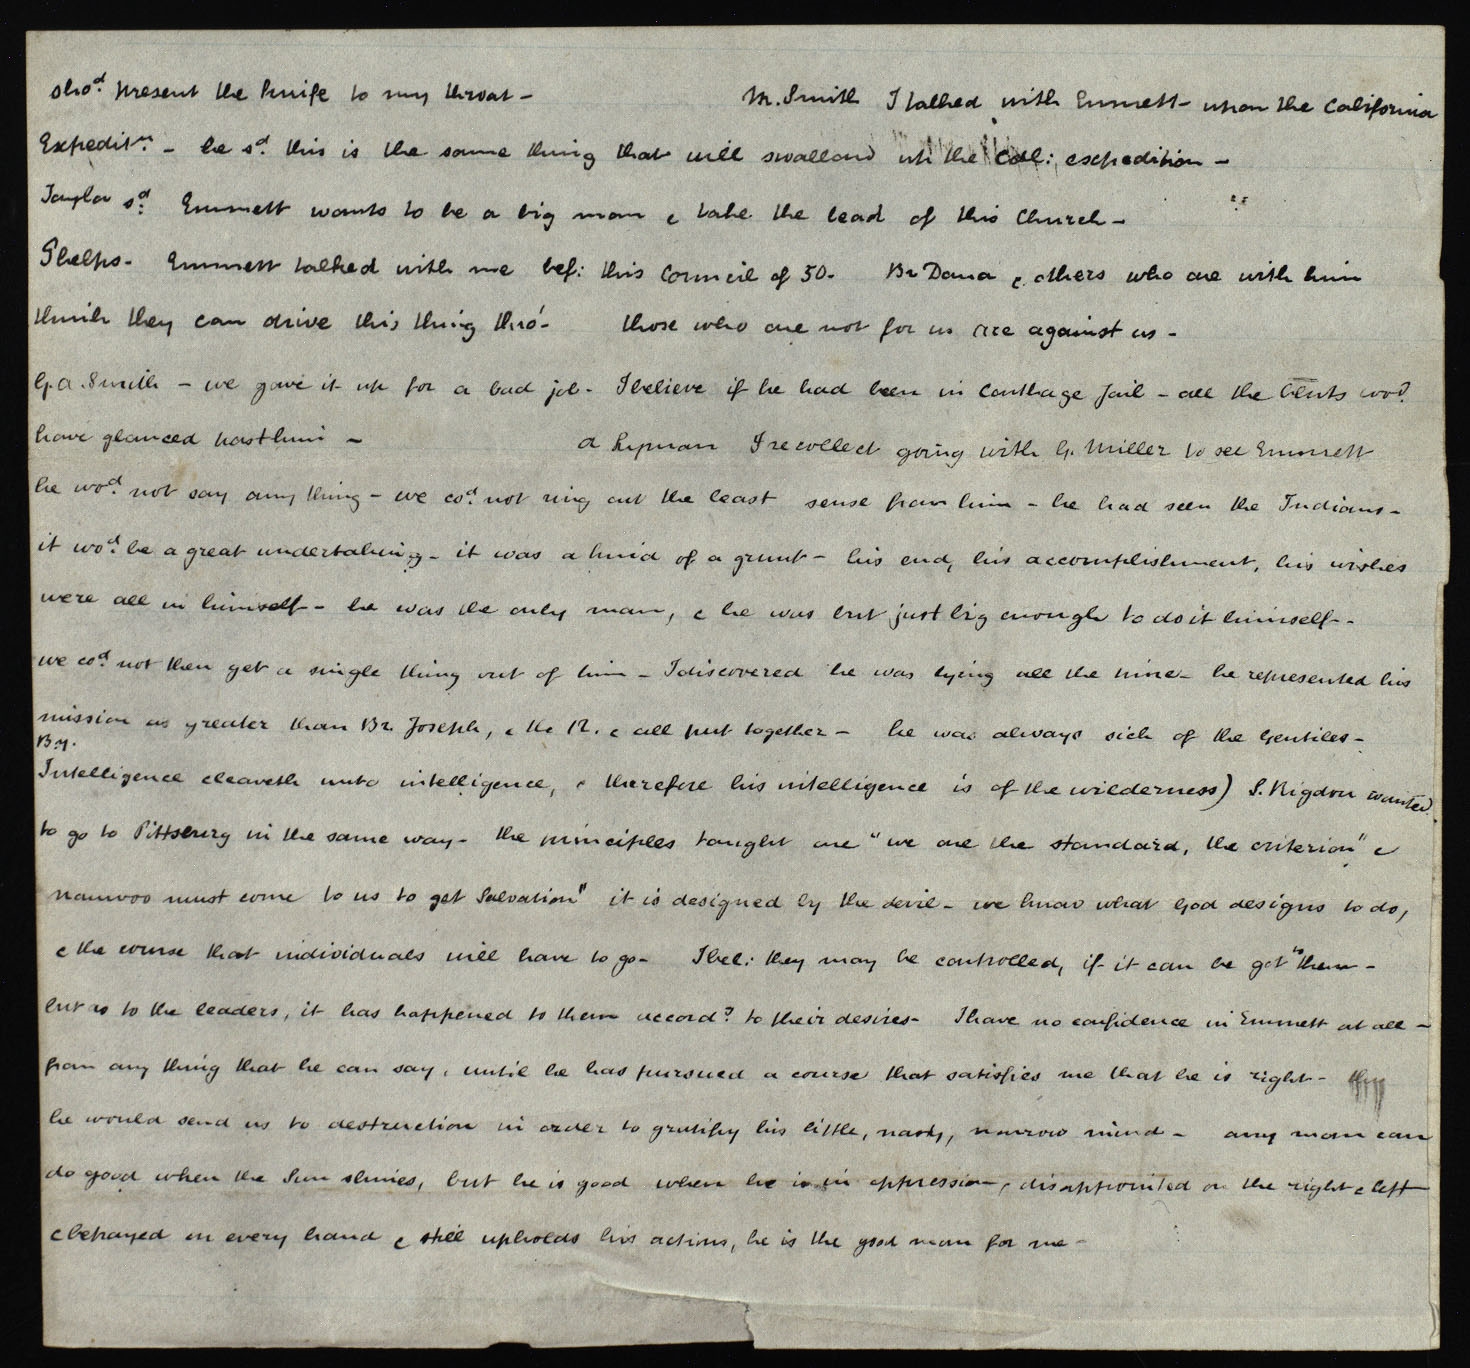 sho.d present the knife to my throat - W. Smith I talked with Emmett - upon the California
Expedit.n - he s.d this is the same thing that will swallow up the Cal: expedition -
Taylor s.d Emmett wants to be a big man & take the lead of this Church -
Phelps - Emmett talked with me bef: this Council of 50 - Br Dana & others who are with him
think they can drive this thing thro' - those who are not for us are against us -
G. A. Smith - we gave it up for a bad job - I believe if he had been in Carthage Jail - all the wo.d
have glanced past him - A Lyman I recollect going with G. Miller to see Emmett
he wo.d not say any thing - we co.d not ring out the least sense from him - he had seen the Indians -
it wo.d be a great undertaking - it was a kind of a grunt - his end, his accomplishment, his wishes
were all in himself - he was the only man, & he was but just big enough to do it himself -
we co.d not then get a single thing out of him - I discovered he was lying all the time - he represented his
mission as greater than Br. Joseph, & the 12. & all put together - he was always sick of the Gentiles -
B.Y.
Intelligence cleaveth unto intelligence, & therefore his intelligence is of the wilderness) S. Rigdon wanted
to go to Pittsburg in the same way - the principles taught are "we are the standard, the criterion" &
nauvoo must come to us to get Salvation" it is designed by the devil - we know what God designs to do,
& the course that individuals will have to go - I bel: they may be controlled, if it can be got to them -
but as to the leaders, it has happened to them accord.g to their desires - I have no confidence in Emmett at all -
from any thing that he can say, until he has pursued a course that satisfies me that he is right -
he would send us to destruction in order to gratify his little, nasty, narrow mind - any man can
do good when the Sun shines, but he is good when he is in oppression, disappointed on the right & left
& betrayed on every hand & still upholds his actions, he is the good man for me -